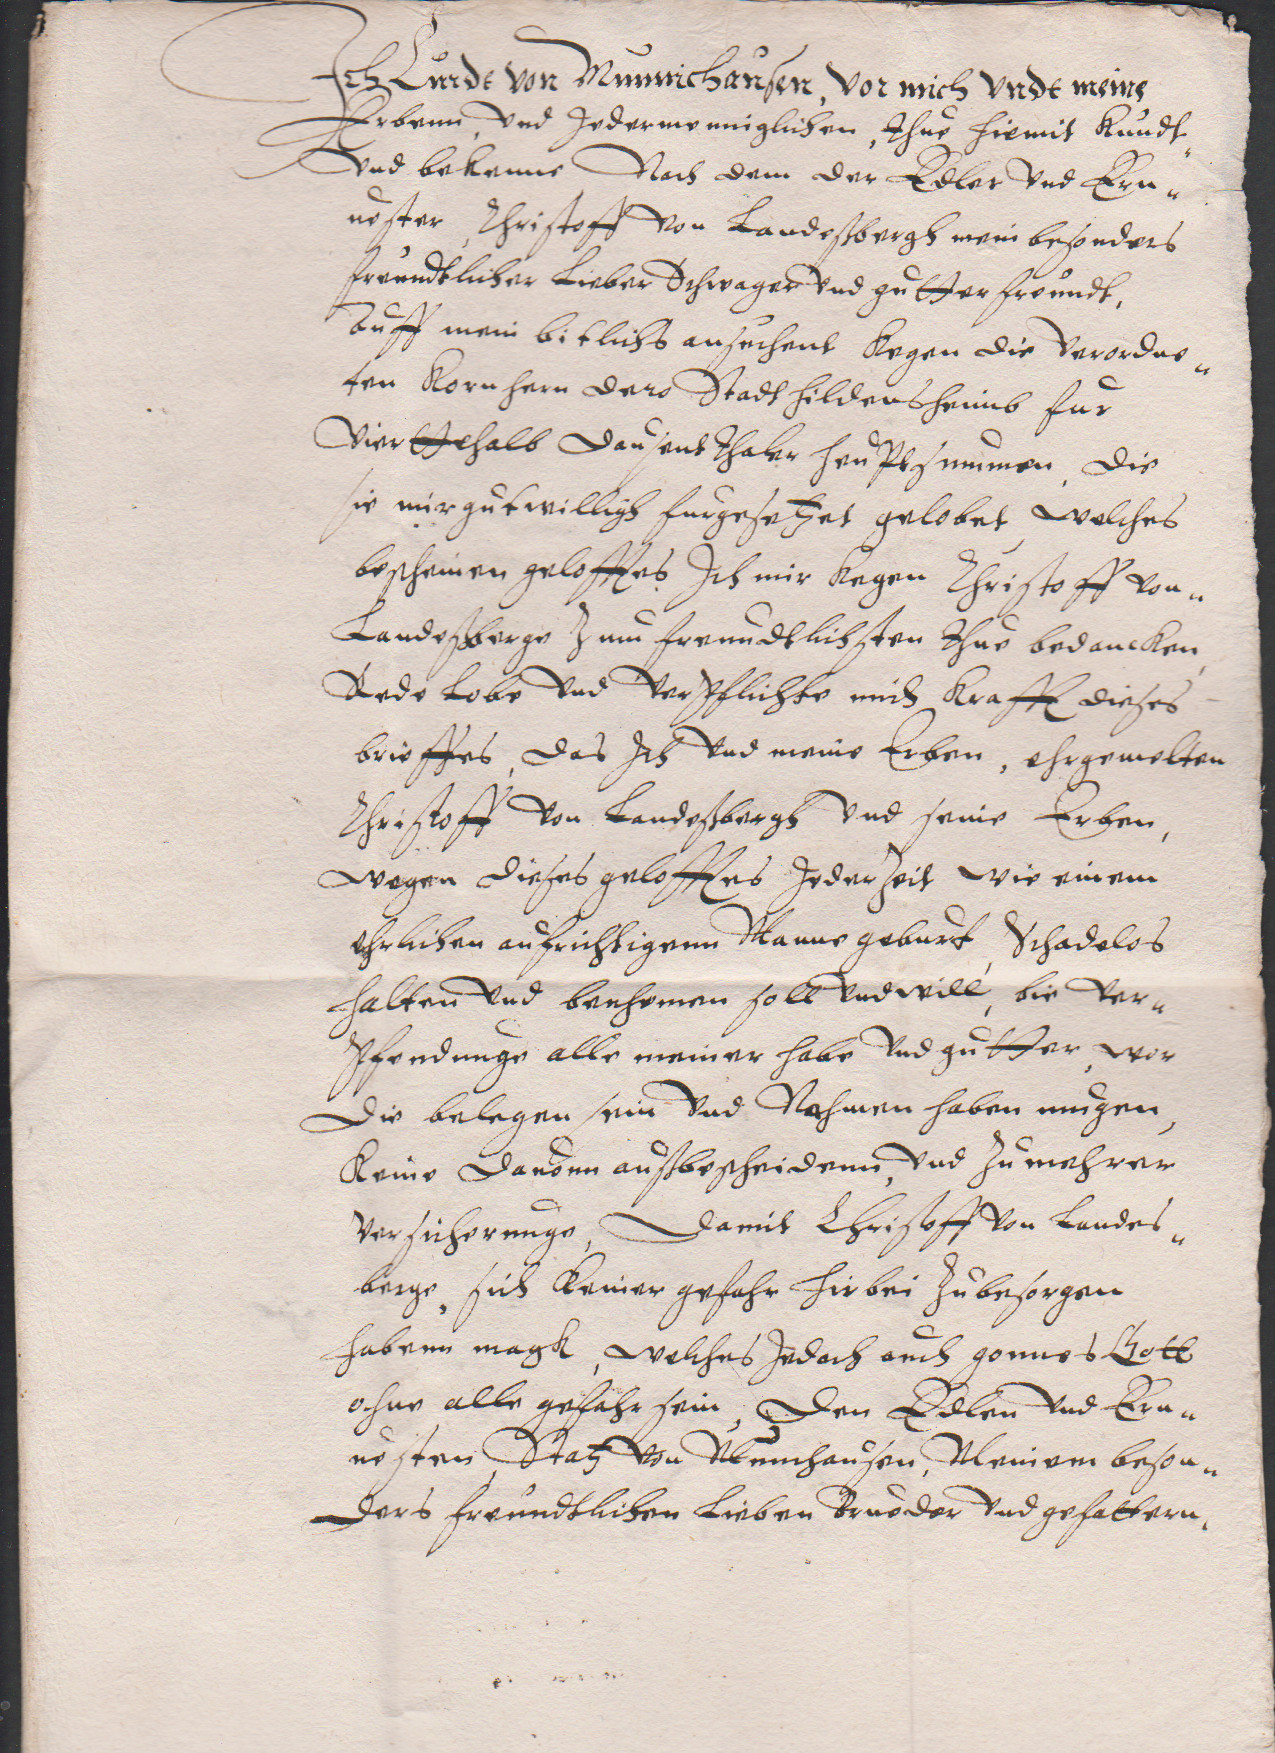 Ich Curdt von Munnichausen, vor mich undt meine
Erbenn, und Jedermenniglichen, thue hiemit kundt
und bekenne Nach dem der Edler und Ern„
uester, Christoff von Landeßbergh mein besonders
freundtlicher Lieber Schwager und gutter freundt,
auff mein bitlichs ansuchent kegen die verordne„
ten Kornhern dero Stadt Hildensheimb fur
vierttehalb Dausent thaler heuptsummen, die
sie mir gutwilligh furgesetzet gelobet, welches
bescheinen gelofftes Ich mir kegen Christoff von„
Landeßberge zum freundtlichsten thue bedancken,
Rede Lobe und verpflichte mich krafft dieses
brieffes, das Ich und meine Erben, ehrgemelten
Christoff von Landeßbergh und seine Erben,
wegen dieses geloffftes Jederzeit wie einem
ehrlichen aufrichtigenn Manne geburt, Schadelos
halten und benhemen soll und will, bie ver„
pfendunge alle meiner habe und gutter, wor
die belegen sein und Nahmen haben mugen,
keine dauonn außbescheidenn, und zu mehrer
versicherunge, Damit Christoff von Landes„
berge, sich keiner gefahr hirbei zubesorgen
habenn magk, welches Jedoch auch gonnes Gott
ohne alle gefahr sein, Den Edlen und Ern„
uesten, Statz von Munchausen, Meinem beson„
ders freundtlichen Lieben Brueder und gefattern,